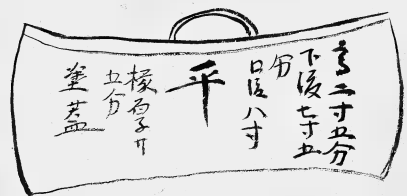 高二寸五分
下径七寸五
分
口径八寸
平
椽高子寸
五分
塗蓋